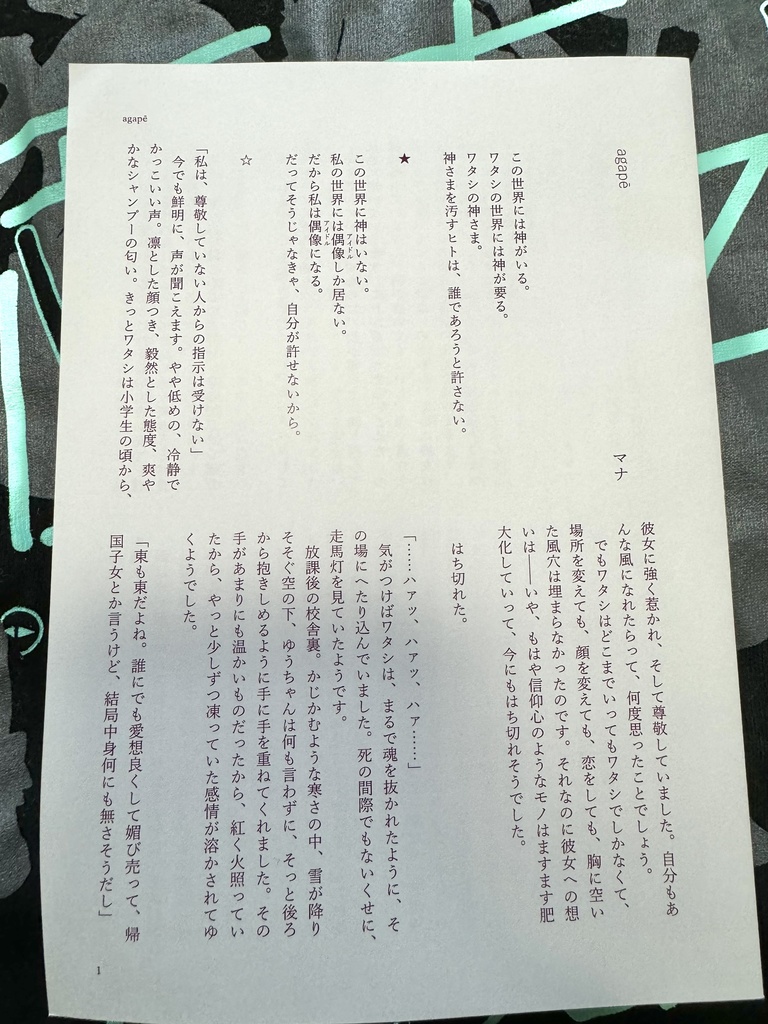 agapē
agapē
マナ
この世界には神がいる。
ワタシの世界には神が要る。
ワタシの神さま。
神さまを汚すヒトは、誰であろうと許さない。
★
この世界に神はいない。
私の世界には偶像しか居ない。
アイドル
だから私は偶像になる。
アイドル
だってそうじゃなきゃ、自分が許せないから。
☆
「私は、尊敬していない人からの指示は受けない」
今でも鮮明に、声が聞こえます。やや低めの、冷静で
かっこいい声。凛とした顔つき、毅然とした態度、爽や
かなシャンプーの匂い。きっとワタシは小学生の頃から、
彼女に強く惹かれ、そして尊敬していました。自分もあ
んな風になれたらって、何度思ったことでしょう。
でもワタシはどこまでいってもワタシでしかなくて、
場所を変えても、顔を変えても、恋をしても、胸に空い
た風穴は埋まらなかったのです。それなのに彼女への想
いは――いや、もはや信仰心のようなモノはますます肥
大化していって、今にもはち切れそうでした。
はち切れた。
「……ハァッ、ハァッ、ハァ……」
気がつけばワタシは、まるで魂を抜かれたように、そ
の場にへたり込んでいました。死の間際でもないくせに、
走馬灯を見ていたようです。
放課後の校舎裏。かじかむような寒さの中、雪が降り
そそぐ空の下、ゆうちゃんは何も言わずに、そっと後ろ
から抱きしめるように手に手を重ねてくれました。その
手があまりにも温かいものだったから、紅く火照ってい
たから、やっと少しずつ凍っていた感情が溶かされてゆ
くようでした。
「東も東だよね。誰にでも愛想良くして媚び売って、帰
国子女とか言うけど、結局中身何にも無さそうだし」
1